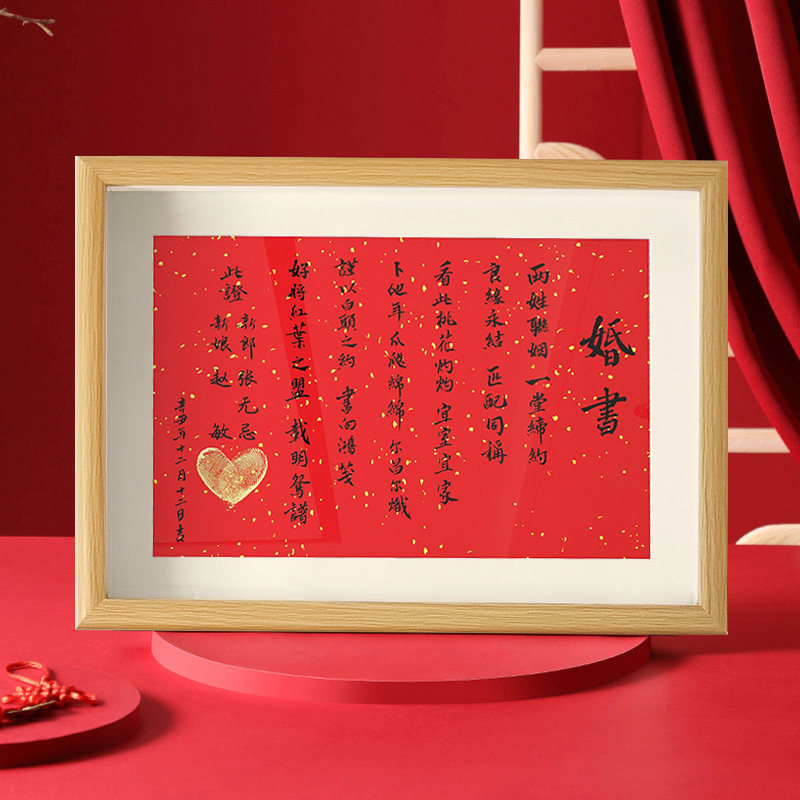 婚書
两姓聯姻 一堂締約
良緣永結 匹配同稱
看此桃花灼灼 宜室宜家
卜他年瓜瓞綿綿 尔昌尔熾
謹以白頭之約 書向鴻箋
好將紅葉之盟 載明鴛譜
此證
新郎 张无忌
新娘 赵敏
辛丑年十二月十二日吉